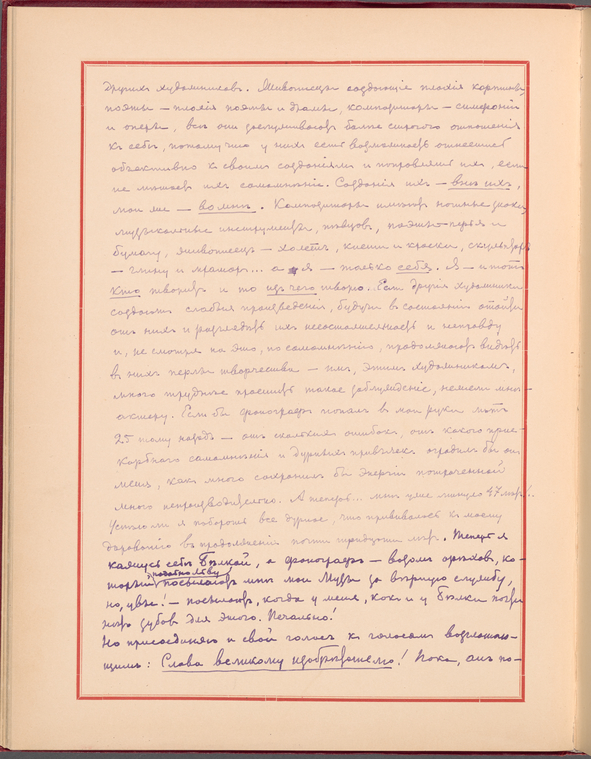 другихъ художниковъ. Живописцы создающіе плохія картины,
поэты — плохія поэмы и драмы, композиторы — симфоніи
и оперы, всѣ они заслуживаютъ болѣе строгаго отношенія
къ себѣ, потому что у нихъ есть возможность отнестись
объективно къ своимъ созданіямъ и поправлять ихъ, если
не мѣшаетъ имъ самомнѣніе. Созданія ихъ — внѣ ихъ,
мои же — во мнѣ. Композиторы имѣютъ нотные знаки,
музыкальные инструменты, пѣвцовъ, поэты — перья и
бумагу, живописецъ — холстъ, кисти и краски, скульпторъ
— глину и мраморъ... а я — только себя. Я — и тотъ
кто творитъ и то изъ чего творю... Если другіе художники
создавъ слабыя произведенія, будучи въ состояніи отойти
отъ нихъ и разглядѣть ихъ несостоятельность и неправду
и, не смотря на это, по самомнѣнію, продолжаютъ видѣть
въ нихъ перлы творчества — имъ, этимъ художникамъ,
много труднѣе простить такое заблужденіе, нежели мнѣ —
актеру. Если бы фонографъ попалъ въ мои руки лѣтъ
25 тому назадъ — отъ сколькихъ ошибокъ, отъ какого
самомнѣнія и дурныхъ привычекъ оградилъ бы онъ
меня, какъ много сохранилъ бы энергіи потраченной
много непроизводительно. А теперь... мнѣ уже минуло 47 лѣтъ!..
Успѣю ли я побороть все дурное, что прививалось къ моему
дарованію въ продолженіи почти тридцати лѣтъ. Теперь я
кажусь себѣ Бѣлкой, а фонографъ — возомъ орѣховъ, ко-
торый посылаютъ мнѣ мои Музы за вѣрную службу,
но, увы! — посылаютъ, когда у меня, какъ и у Бѣлки
нѣтъ зубовъ для этого. Печально!
Но присоединяю и свой голосъ къ голосамъ возглашаю-
щимъ: Слава великому изобрѣтателю! Пока, онъ по-